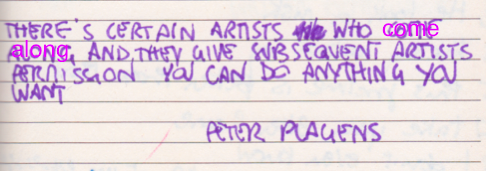 THERE'S CERTAIN ARTISTS WHO come
along, AND THEY GIVE SUBSEQUENT ARTISTS
PERMISSION YOU CAN DO ANYTHING YOU
WANT
PETER PLAGENS